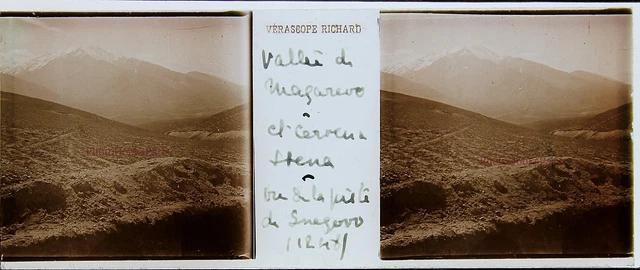 VÉRASCOPE RICHARD
Vallée de
Magarevo
et Cervena
Stena
vue de la piste
de Snegovo
(1248)